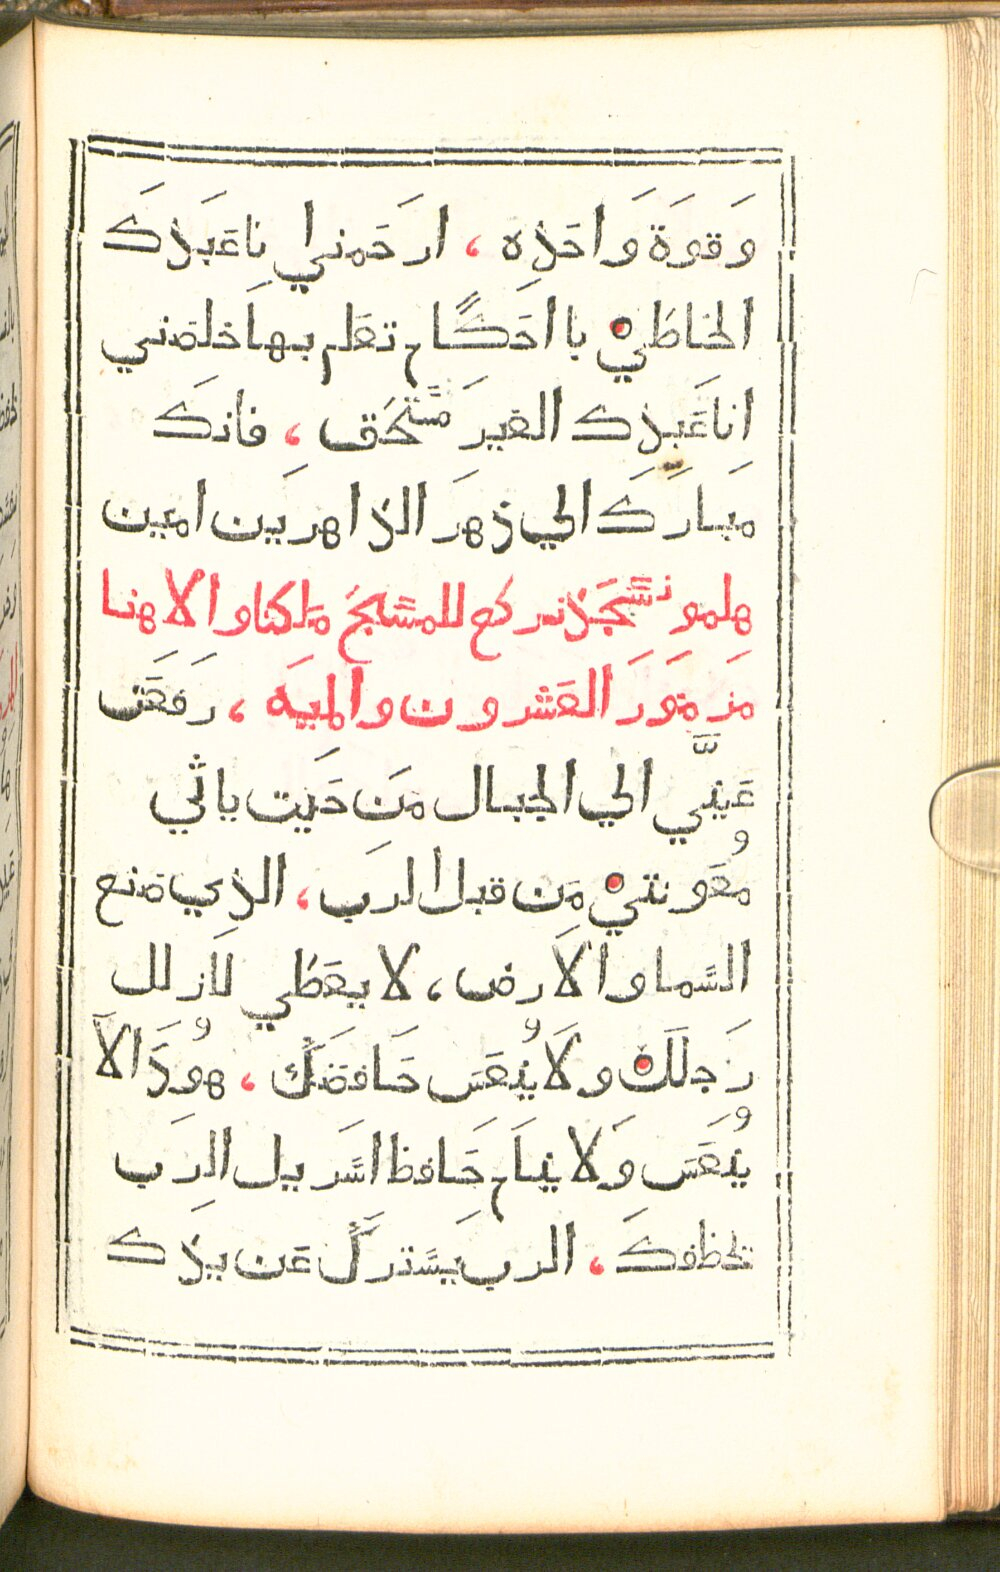 وَقوَة وَاحَذِه ، ارحَمني انا عَبَذكَ
الخاطَي بااحَكًام تعَلم بهاَ خلقني
اناعَبذك الغير مسًتحَق ، فانكَ
مَباركَ الي ذهرَ الذاهرين امين
هلمو نسًجَذ نركع للمسًيحَ مَلكنا والاهنا
مَزمَورَ العَشرون والميهَ ، رَفعَت
عَينيَّ الي الجبال مَن حَيَت ياتَي
مُعَونتي مَن قبل الرَب ، الذي صنع
السًما والارض ، لا يعَطَي للازلل
رَجلَك ولَا يُنعَسَ حَافظَكً ، هُوذَا لاَ
يُنعَسَ وَلا ينَام حَافظ اسًرَيل الرَب
يحَفظكَ ، الرب يسًترَكً عَن يذك